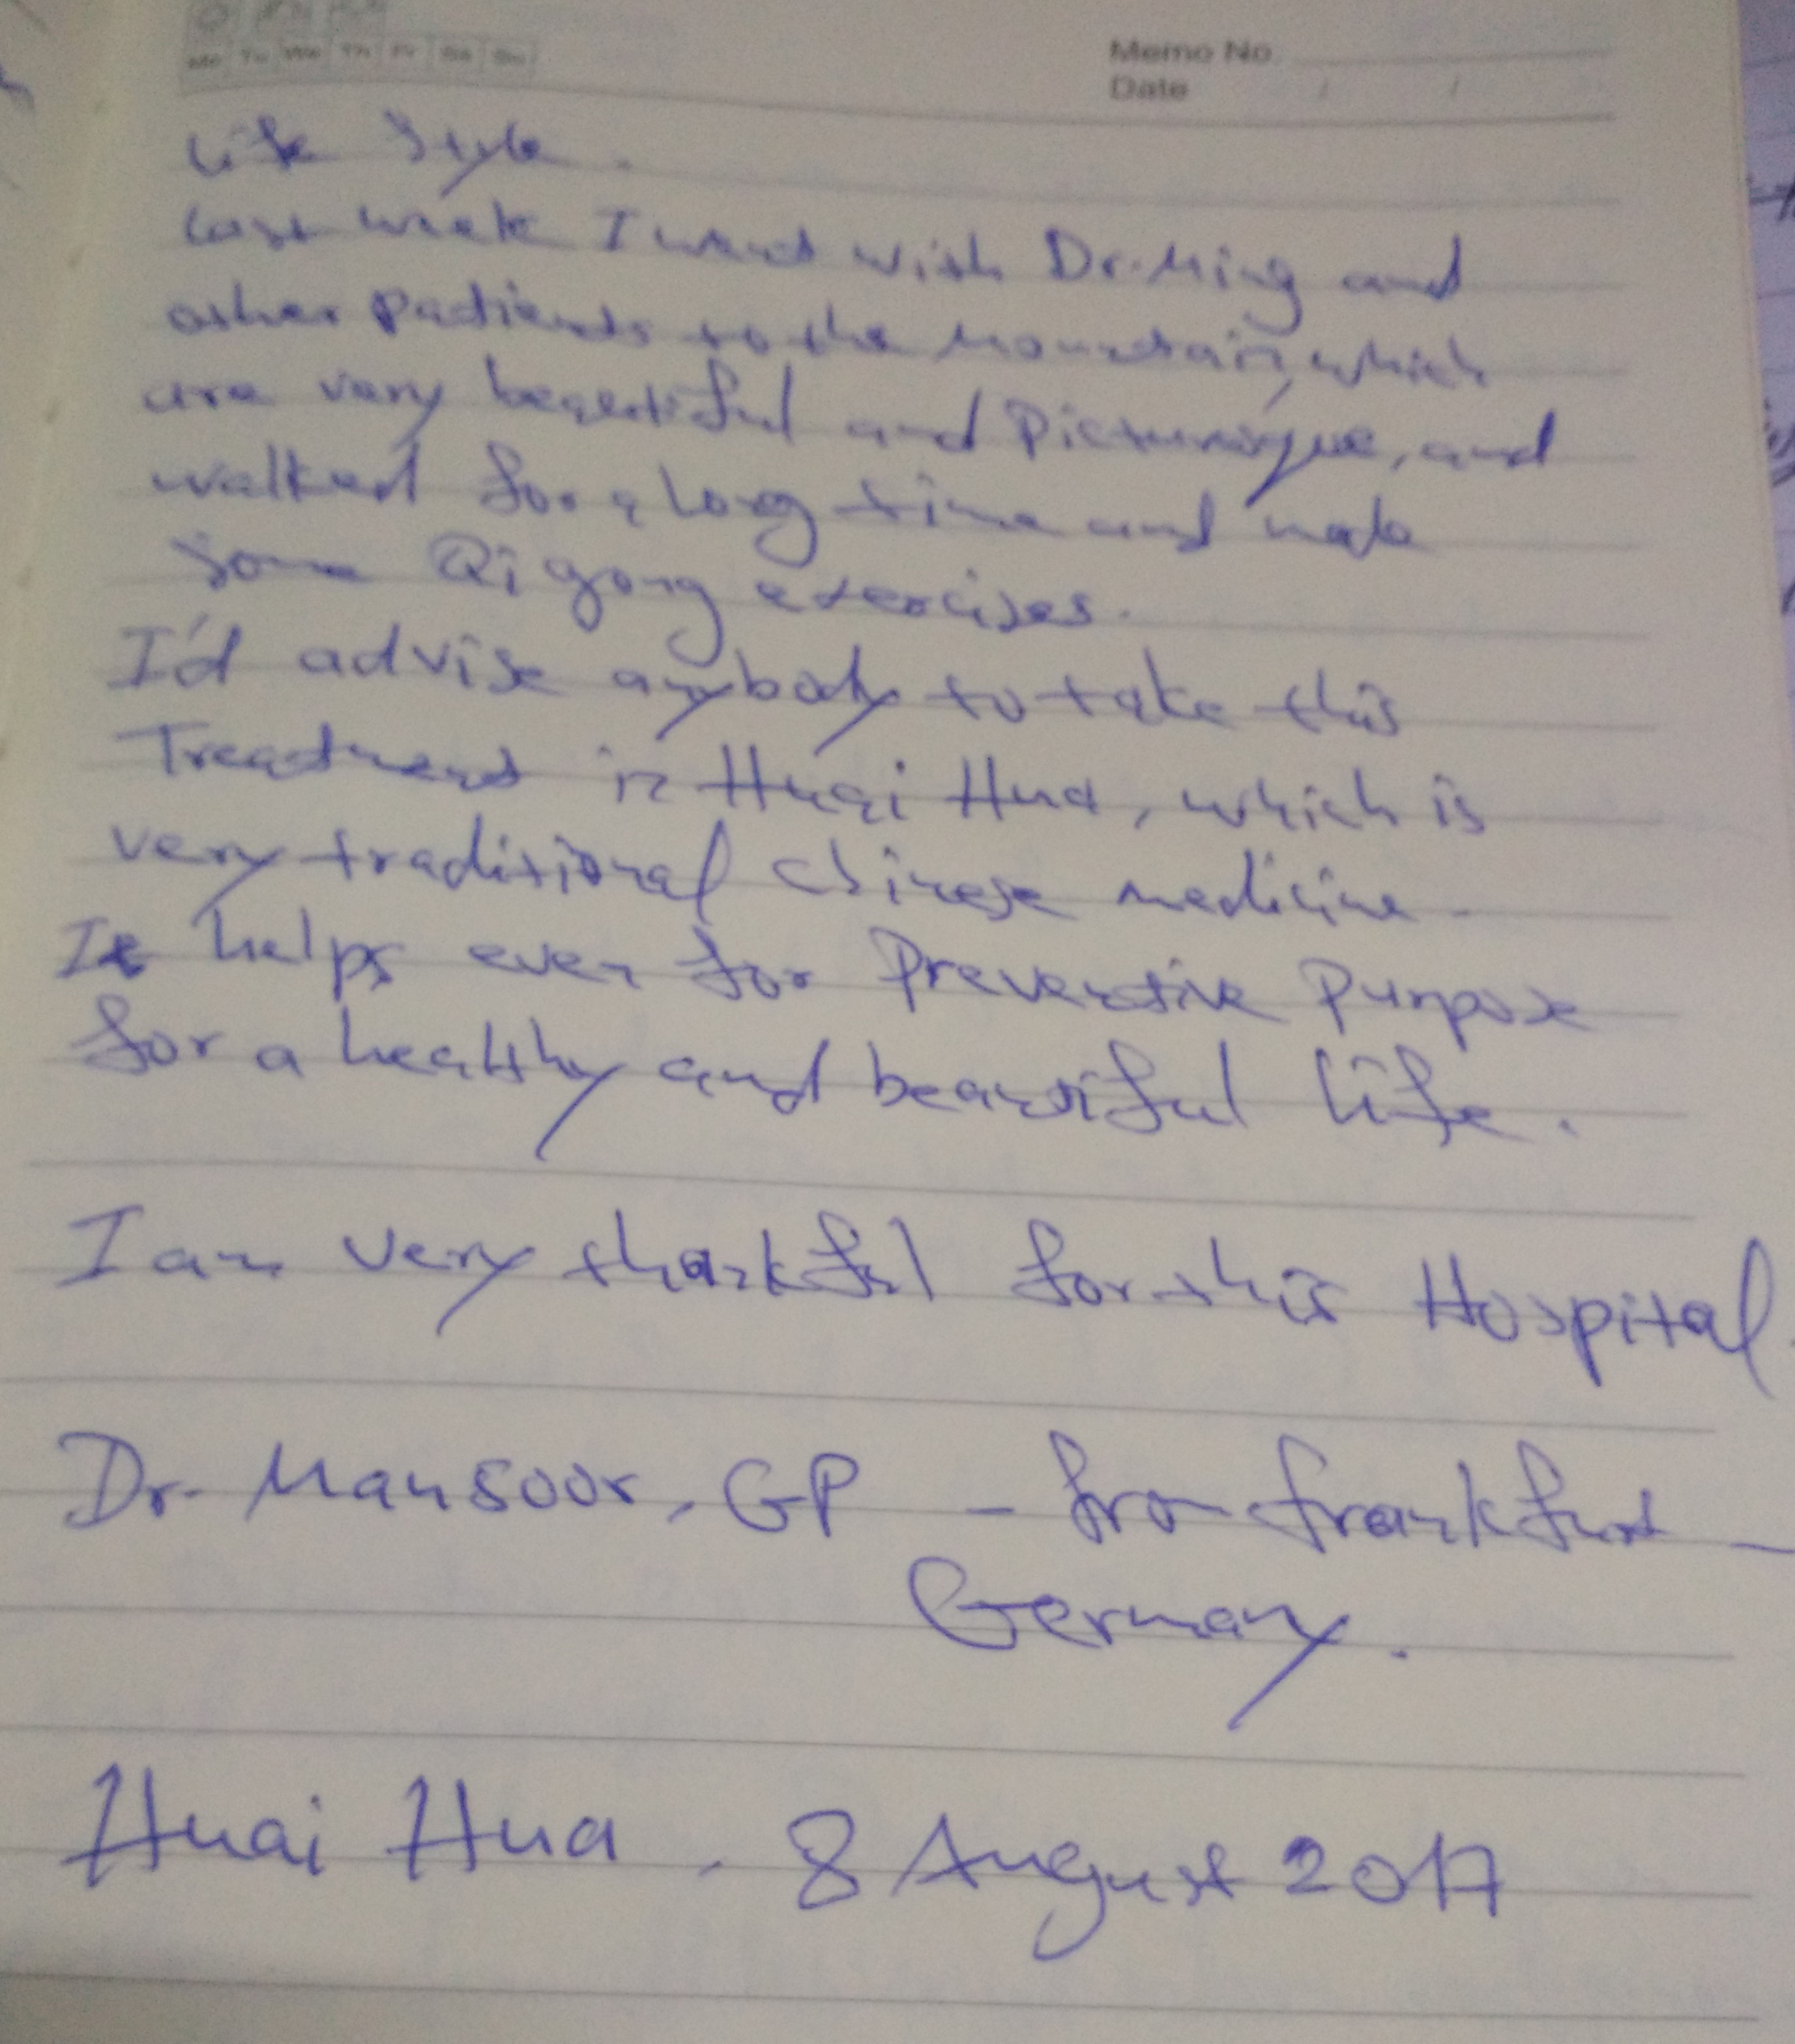 Mo Tu We Th Fr Sa Su
Memo No.
Date / /
Life Style.
Last week I went with Dr. Ming and
other patients to the Mountain, which
are very beautiful and Picturesque, and
walked for a long time and made
some Qi gong exercises.
I'd advise anybody to take this
Treatment in Huai Hua, which is
very traditional chinese medicine.
It helps even for Preventive Purpose
for a healthy and beautiful life.
I am very thankful for this Hospital.
Dr. Mansoor, GP - from Frankfurt -
Germany.
Huai Hua, 8 August 2017